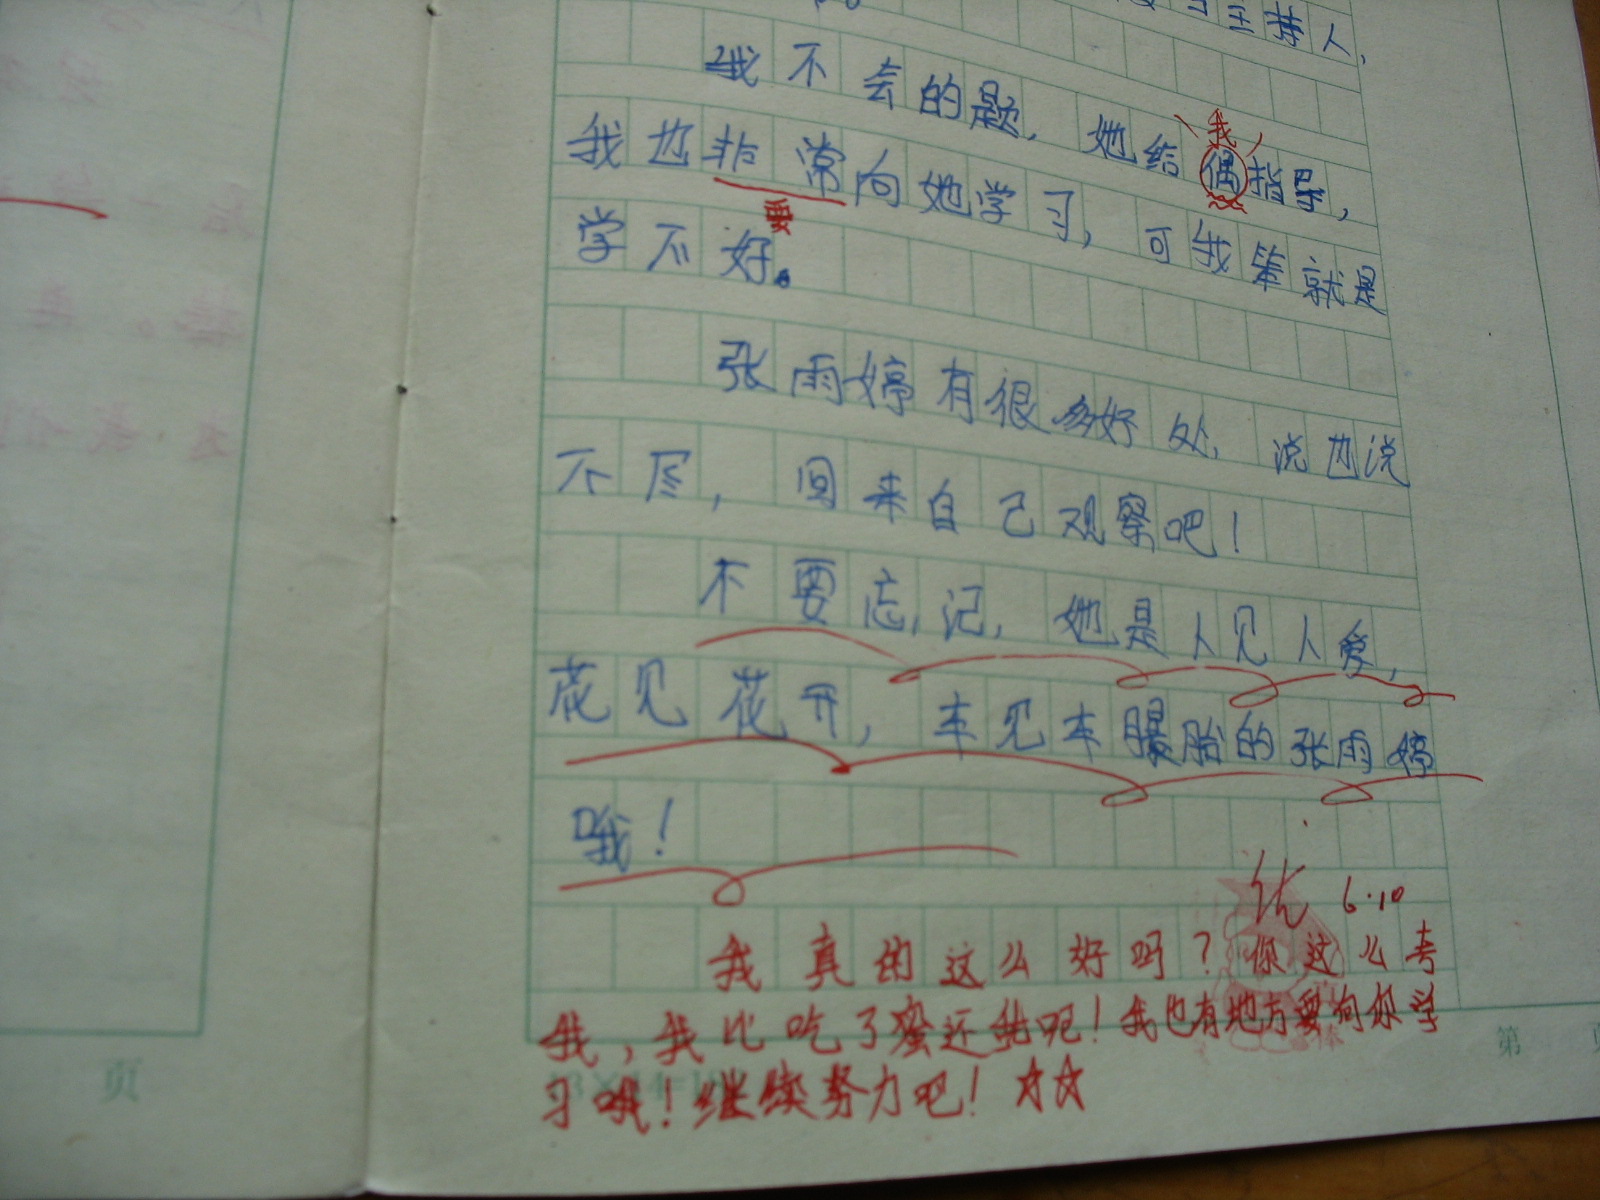 主持人,
我不会的题,她给偶指导,
我
我也非常向她学习,可我笨就是
要
学不好。
张雨婷有很多好处,说也说
不尽,回来自己观察吧!
不要忘记,她是人见人爱,
花见花开,车见车曝胎的张雨婷
哦!
优 6.10
我真的这么好吗?你这么夸
我,我比吃了蜜还甜呢!我也有地方要向你学
习哦!继续努力吧!☆☆
第 页
页